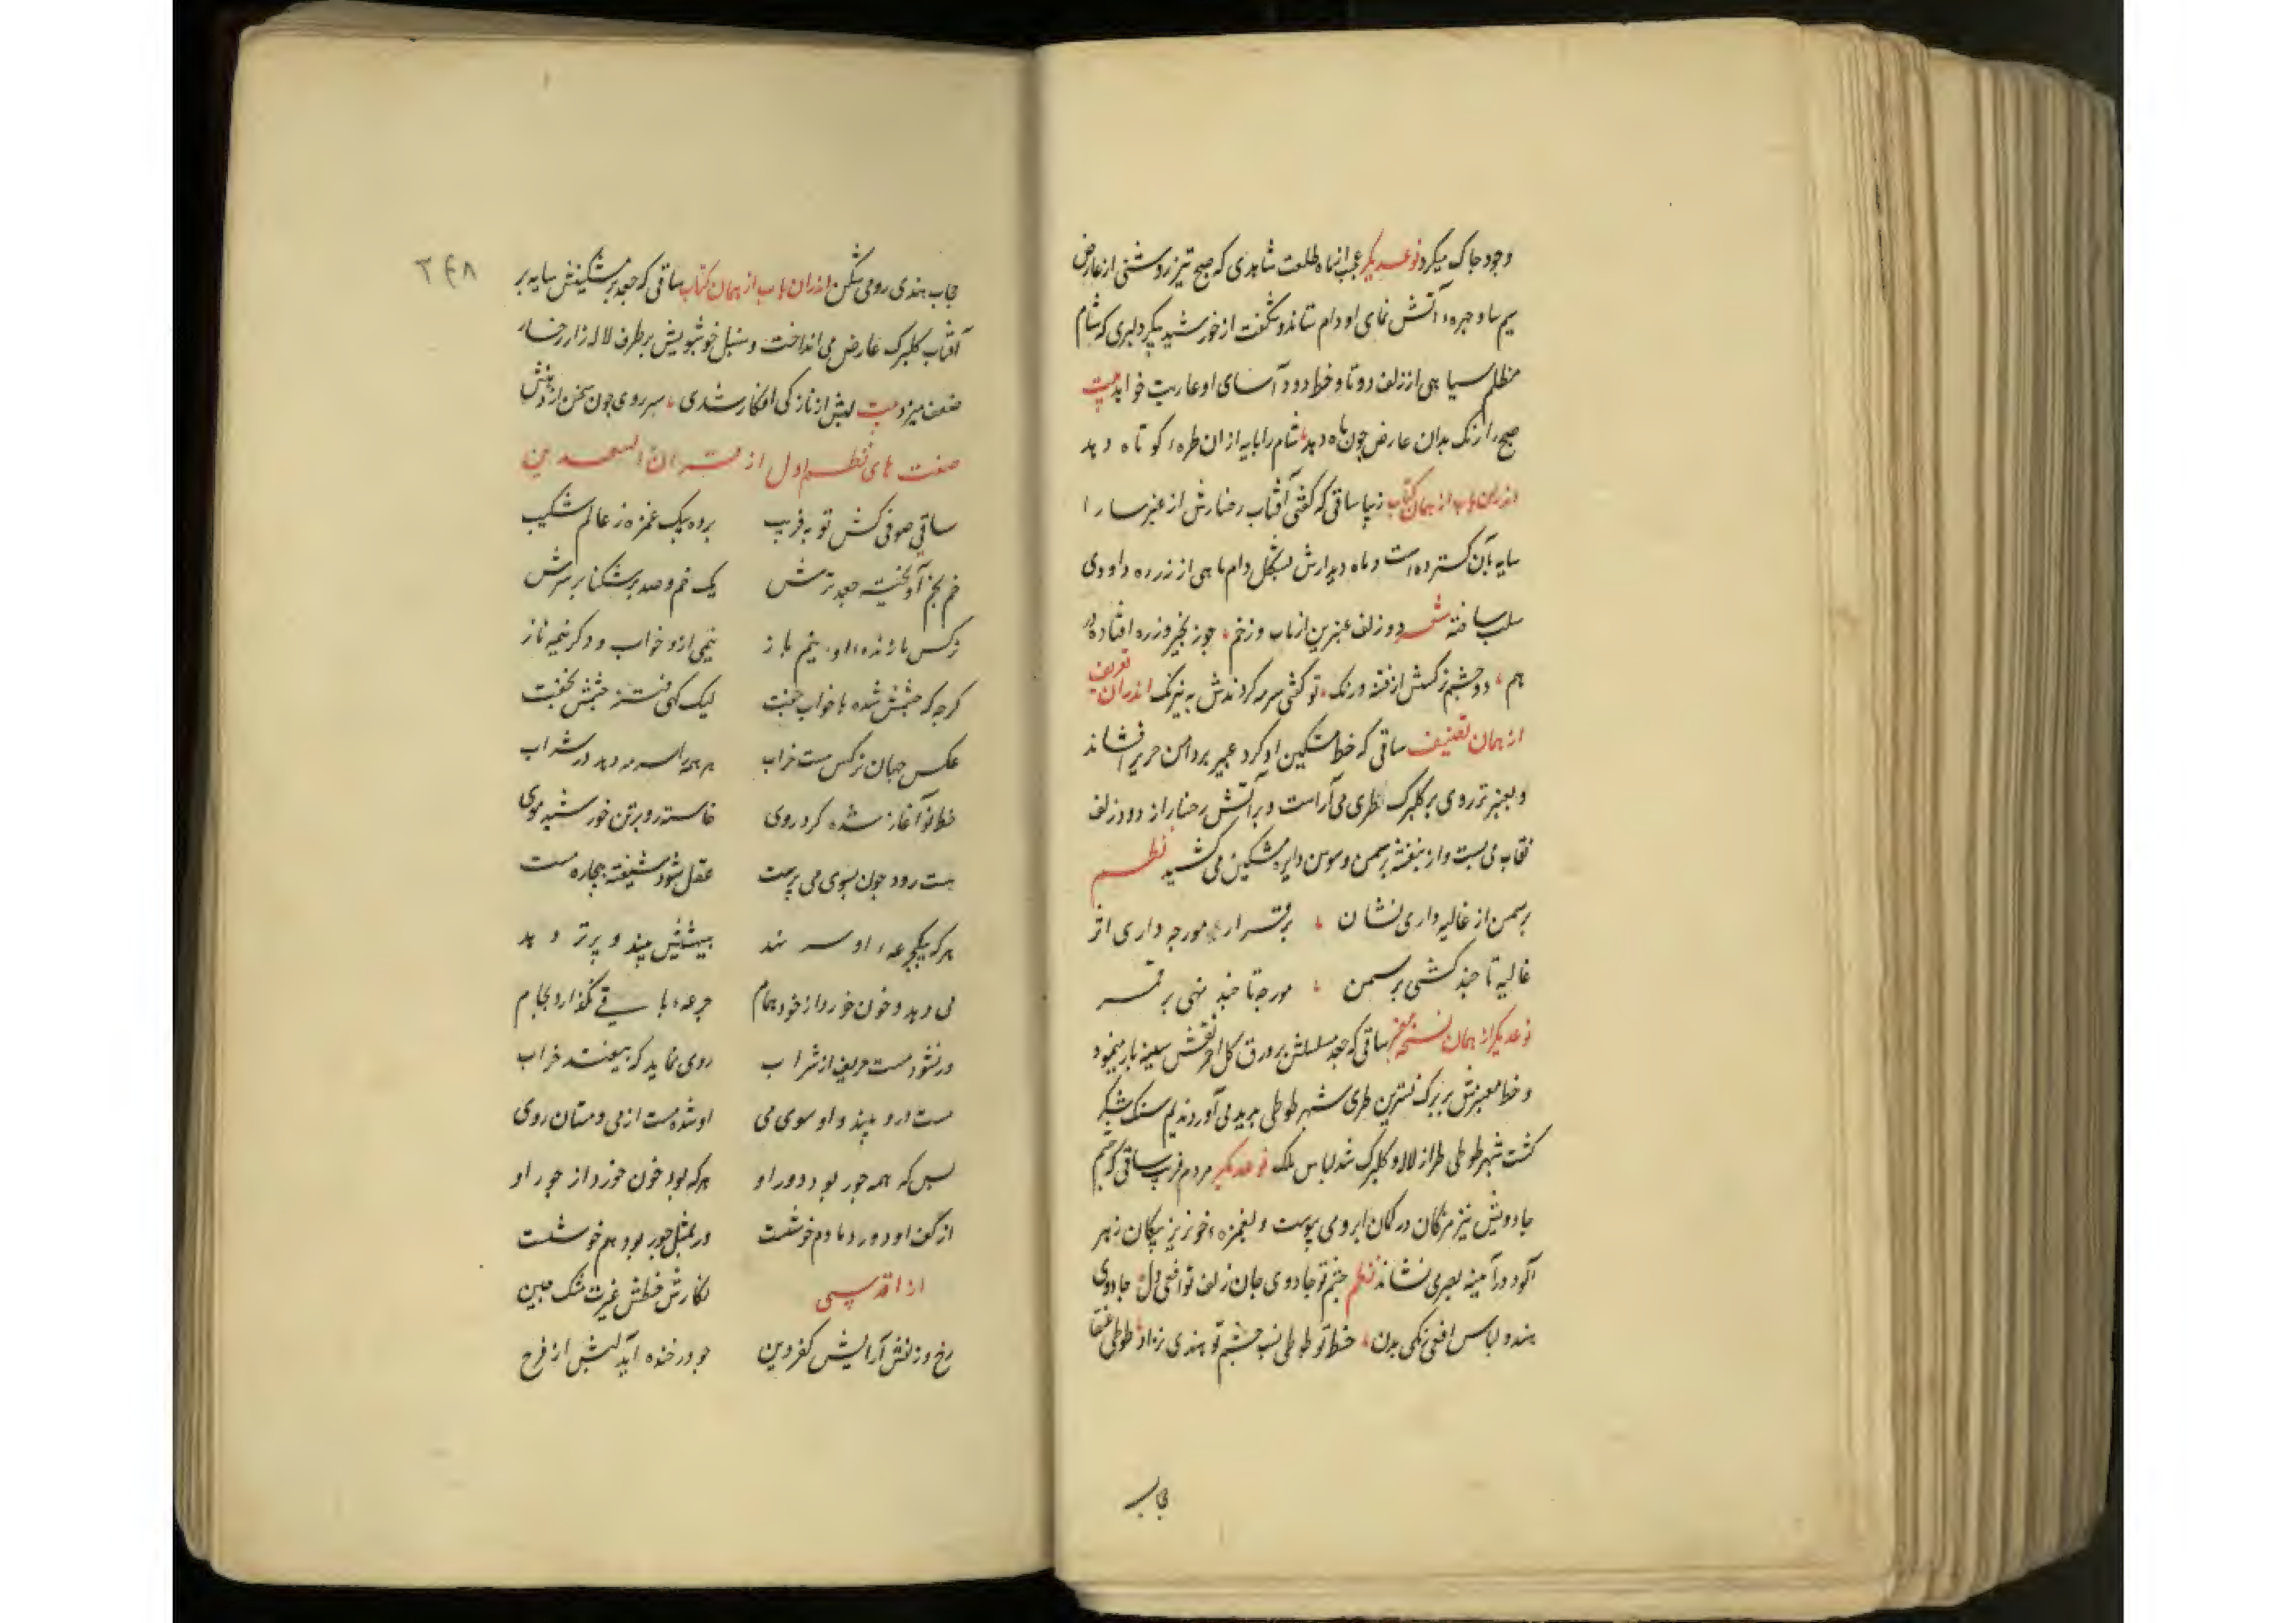 وجود چاک میکرد نوعدیکر عجب از ماه طلعت شاهدی که صبح تیز روشنی از عارض
سیم سا و چهره آتش نمای او وام ستاند و شکفت از خورشید پیکر دلبری که شام
مظلم سیاهی از زلف دوتا و خط دود آسای او عاریت خواهد بیت
صبح را رنک بدان عارض چون ماه دهد شام را پایه ازان طره کوتاه دهد
اندران باب از همان کتاب زیبا ساقی که کفتی آفتاب رخسارش از عنبر سارا
سایه بان کسترده است و ماه دیدارش بشکل دام ماهی از زره داودی
سلب ساخته شعر دو زلف عنبرین از تاب و ز خم چو زنجیر و زره افتاده در
هم دو چشم نرکسش از فتنه و رنک تو کفتی سرمه کردندش به نیرنک اندران تعریف
از همان تصنیف ساقی که خط مشکین او کرد عبیر بر دامن حریر می افشاند
و بعنبر تر روی بر کلبرک طری می آراست و بر آتش رخسار از دود زلف
نقاب می بست و از بنفشه بر سمن و سوسن دایره مشکین می کشید نظم
بر سمن از غالیه داری نشان برقرار مورچه داری اثر
غالیه تا چند کشی بر سمن مورچه تا چند نهی بر قمر
نوعدیکر از همان نسخه ساقی که جعد مسلسلش بر ورق کل احمر نقش سلسله باز مینمود
و خط معنبرش بر برک نسترین طری شهپر طوطی پدید می آورد ندیم سنک شکر
کشت شهپر طوطی طراز لاله و کلبرک شد لباس ملک نوعدیکر مردم فریب ساقی که چشم
جادویش تیر مژکان در کمان ابرو می پیوست و بغمزه خونریز پیکان زهر
آلود در آینه بصر می نشاند نظم چشم تو جادوی جان زلف تو افعی دل جادوی
هندو لباس افعی زنکی بدن خط تو طوطی نسب چشم تو هندی نژاد طوطی عنقا
حجاب
۲۴۸
حجاب هندی رومی شکن اندران باب از همان کتاب ساقی که جعد مشکینش سایه بر
آفتاب کلبرک عارض می انداخت و سنبل خوشبویش بر طرف لاله زار رخسار
صف میزد بیت لبش از نازکی افکار شدی سر روی چون سخن از دهنش
صفت های نظم اول از قران السعدین
ساقی صوفی کش تو به فریب برده بیک غمزه ز عالم شکیب
خم بخم آویخته جعد ترش یک خم و صد بر شکنا بر سرش
نرکس نازنده او نیم باز نیمی از و خواب و دکر نیمه ناز
کرچه که چشمش شده با خواب جفت لیک کهی فتنه ز چشمش نخفت
عکس جهان نرکس مست خراب بر همه سر مدهد در شراب
خط نو آغاز شده کرد روی خاسته رو بر تن خورشید موی
مست رود چون بسوی می پرست عقل شود شیفته بیچاره مست
هرکه بیک جرعه او سر نهد بیشترش بیند و پر تر دهد
می دهد و خون خورد از خود همام جرعه باقی نکذارد بجام
ور نشود مست حریف از شراب روی نماید که بیفتد خراب
مست درو بیند و او سوی می او شده مست از می و مستان روی
بس که همه جور بود دور او هرکه بود خون خورد از جور او
از کف او دور دمادم خوشست ور بمثل جور بود هم خوشست
از اقدسی نکارش خطش غیرت مشک چین
رخ و زلفش آرایش کفر و دین چو در خنده آید لبش از فرح